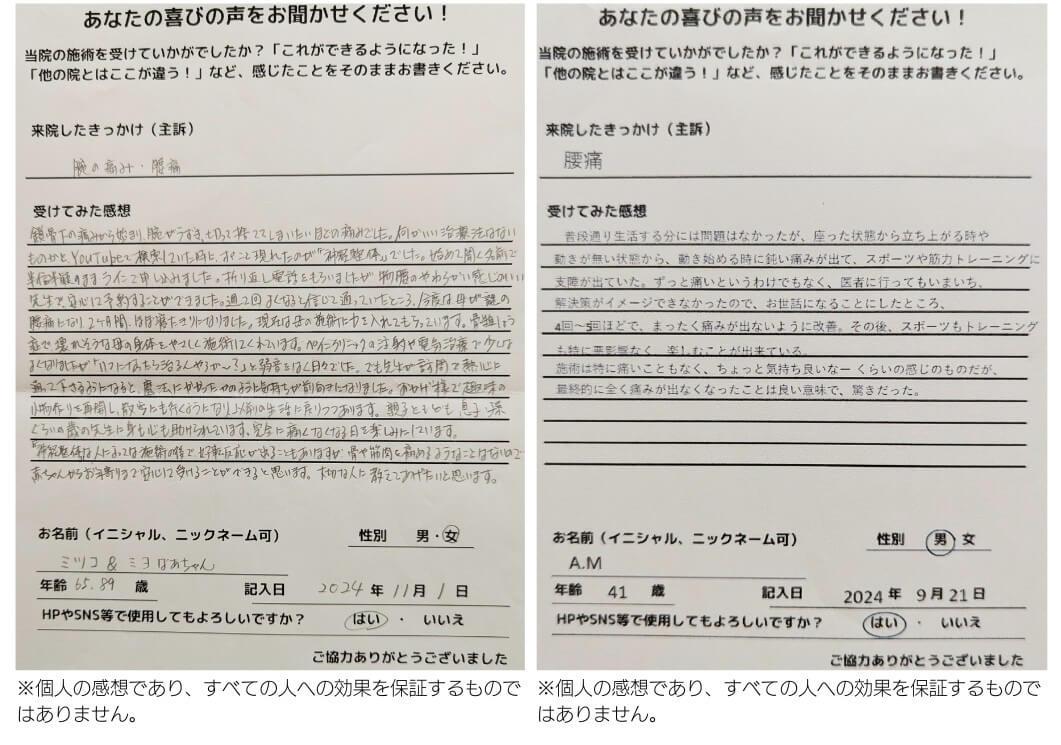 あなたの喜びの声をお聞かせください！
当院の施術を受けていかがでしたか？「これができるようになった！」
「他の院とはここが違う！」など、感じたことをそのままお書きください。
来院したきっかけ（主訴）
腕の痛み・腰痛
受けてみた感想
鎖骨下の痛みから始まり、腕がうずき、切って捨ててしまいたいほどの痛みでした。何かいい治療法はない
ものかとYouTubeで検索していた時に、
半信半疑のままラインで申し込みました。折り返し電話をもらいましたが物腰のやわらかい感じのいい
先生で安心して予約することができました。週2回よくなると信じて通っていたところ、今度は母が
腰痛になり2ヶ月間、ほぼ寝たきりになりました。現在は母の施術に力を入れてもらっています。骨粗しょう
症で壊れそうな母の身体をやさしく施術してくれています。ペインクリニックの注射や電気治療で少しは
よくなりましたが「いつになったら治るんやろか〜？」と弱音をはく日々でした。でも先生が訪問で熱心に
になると、魔法にかかったかのように気持ちが前向きになりました。おかげ様で趣味の
小物作りを再開し、散歩にも行くようになり以前の生活に戻りつつあります。親子ともども息子・孫
ぐらいの歳の先生に身も心も助けられています。完全に痛くなくなる日を楽しみにしています。
神経整体は人によっては施術の後で好転反応が出ることもありますが骨や筋肉を痛めるようなことはないので
赤ちゃんからお年寄りまで安心して受けることができると思います。大切な人に教えてあげたいと思います。
お名前（イニシャル、ニックネーム可）　性別　男・女
ミツコ & ミヨばあちゃん
年齢 65.89 歳　記入日　2024 年 11 月 1 日
HPやSNS等で使用してもよろしいですか？　はい ・ いいえ
ご協力ありがとうございました
※個人の感想であり、すべての人への効果を保証するもので
はありません。
あなたの喜びの声をお聞かせください！
当院の施術を受けていかがでしたか？「これができるようになった！」
「他の院とはここが違う！」など、感じたことをそのままお書きください。
来院したきっかけ（主訴）
腰痛
受けてみた感想
普段通り生活する分には問題はなかったが、座った状態から立ち上がる時や
動きが無い状態から、動き始める時に鈍い痛みが出て、スポーツや筋力トレーニングに
支障が出ていた。ずっと痛いというわけでもなく、医者に行ってもいまいち、
解決策がイメージできなかったので、お世話になることにしたところ、
4回～5回ほどで、まったく痛みが出ないように改善。その後、スポーツもトレーニング
も特に悪影響なく、楽しむことが出来ている。
施術は特に痛いこともなく、ちょっと気持ち良いなー くらいの感じのものだが、
最終的に全く痛みが出なくなったことは良い意味で、驚きだった。
お名前（イニシャル、ニックネーム可）　性別　男 女
A.M
年齢 41 歳　記入日　2024 年 9 月 21 日
HPやSNS等で使用してもよろしいですか？　はい ・ いいえ
ご協力ありがとうございました
※個人の感想であり、すべての人への効果を保証するもので
はありません。